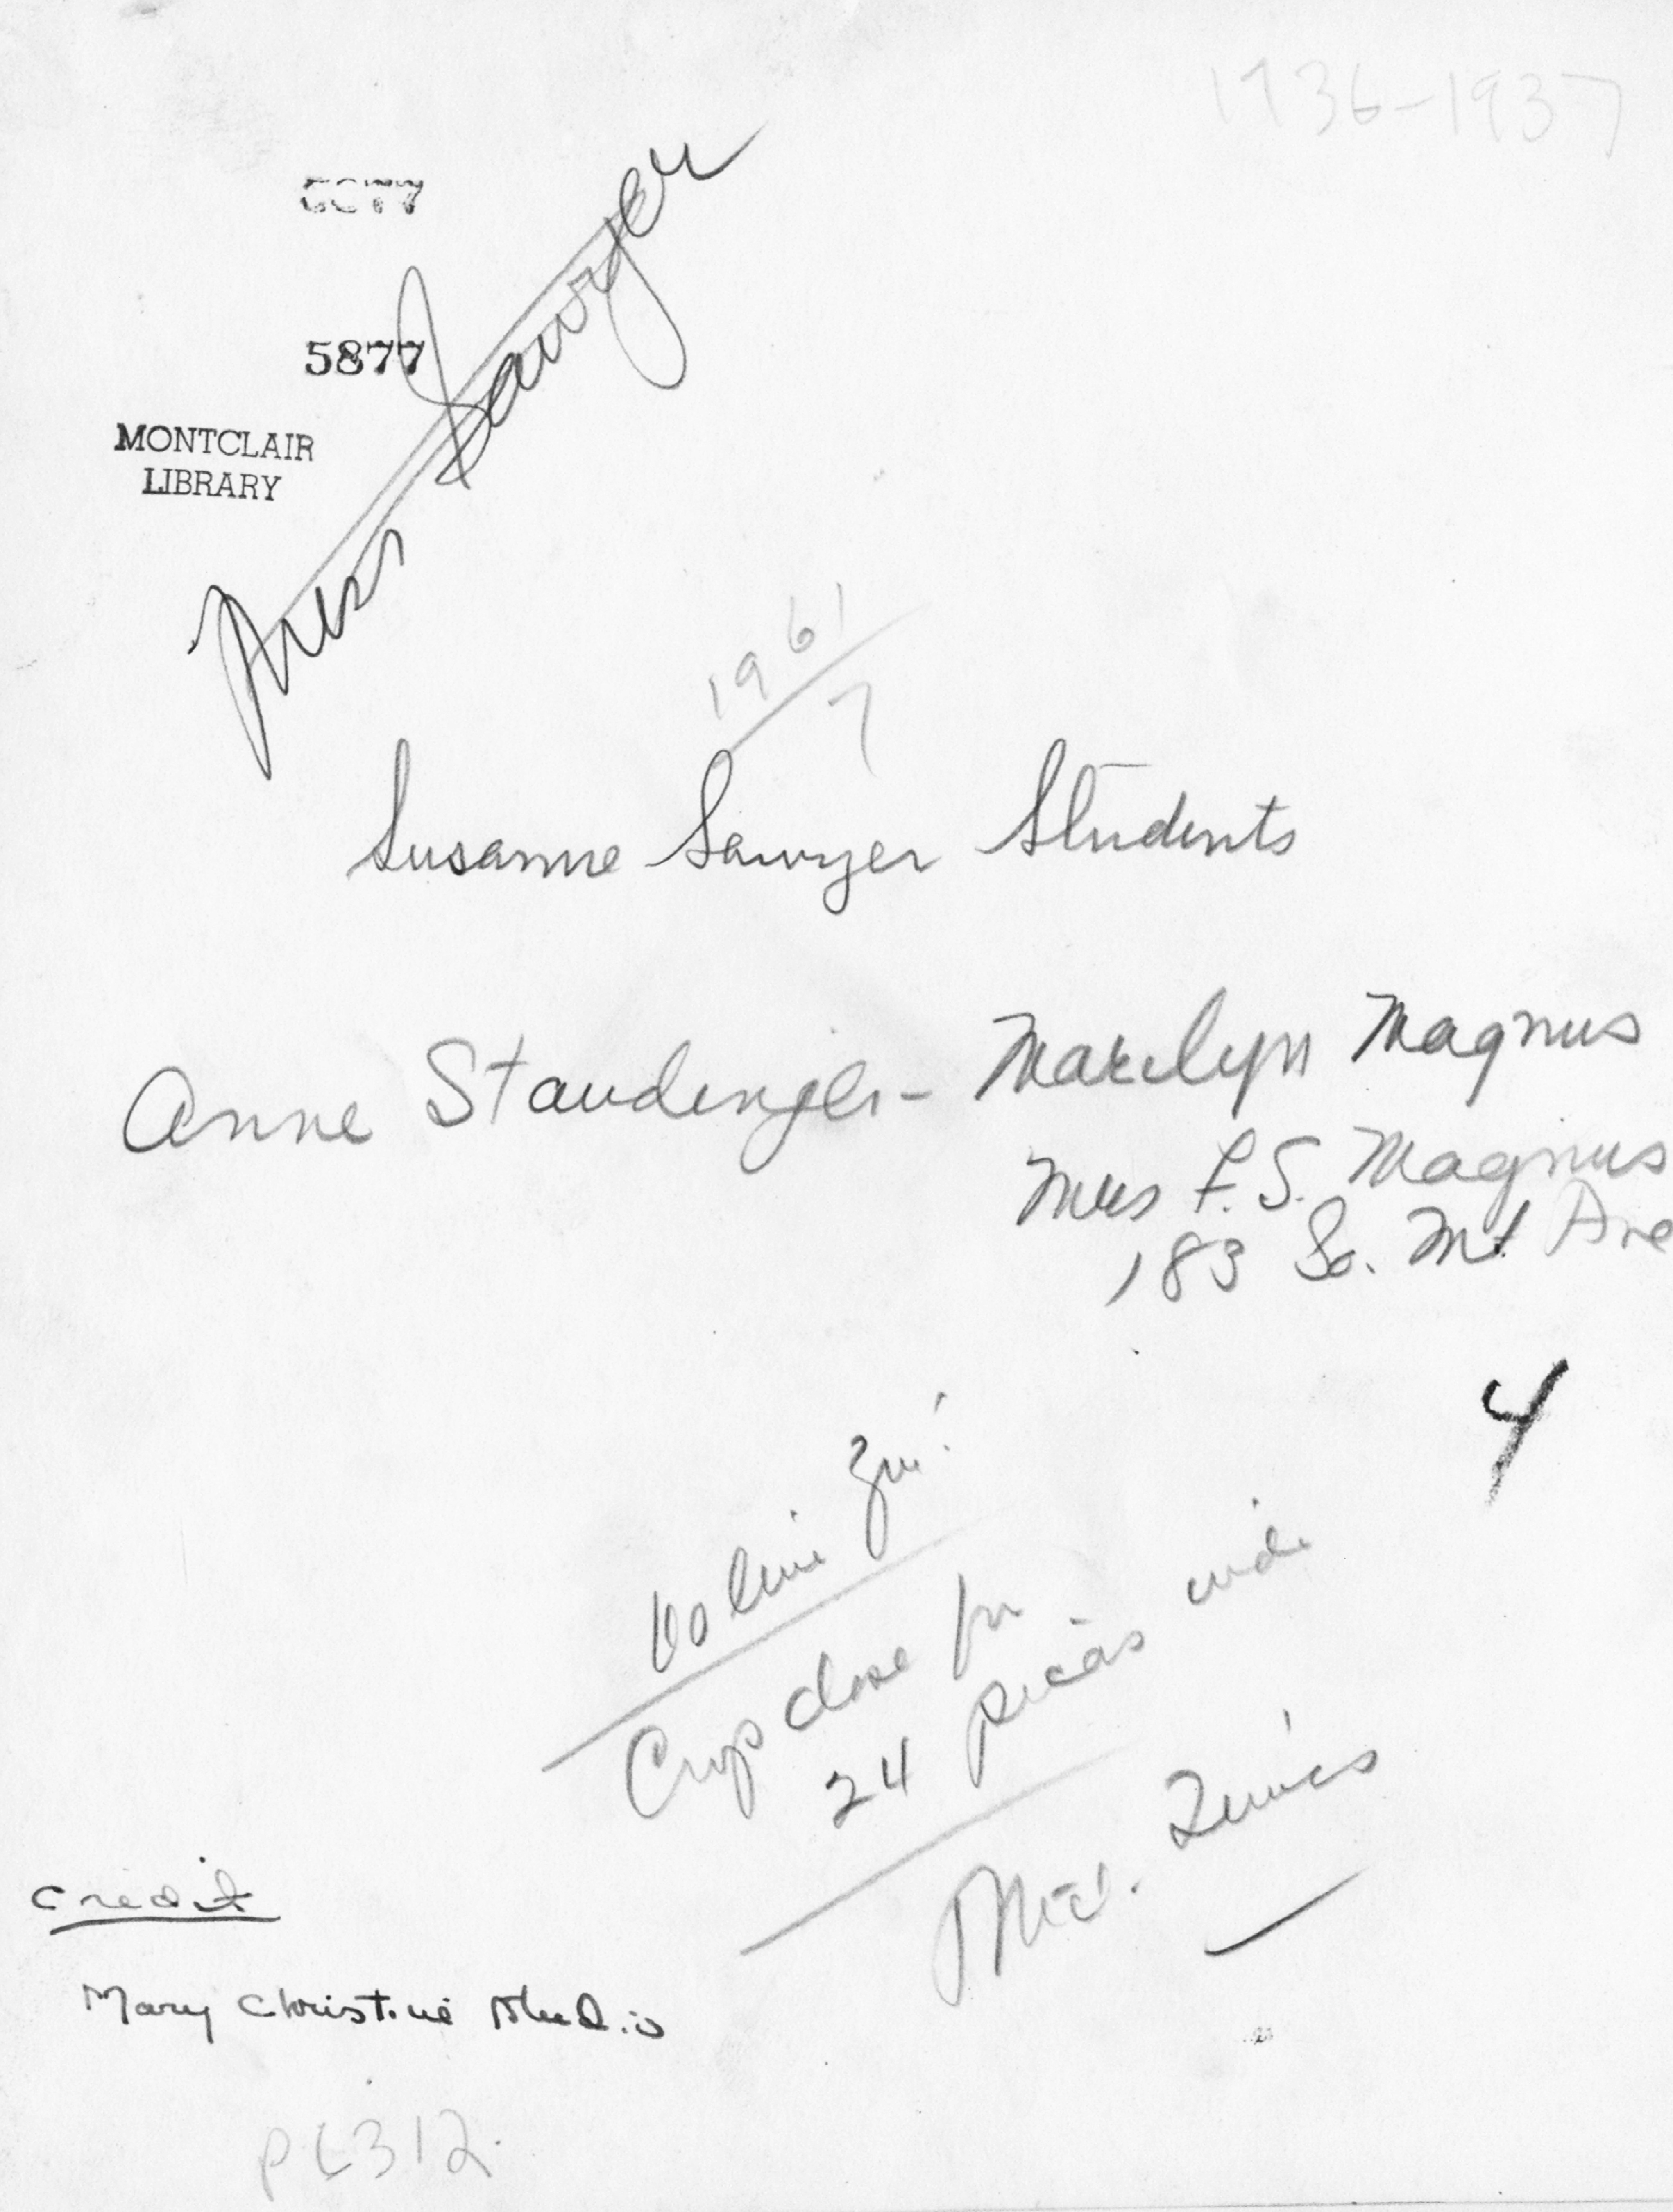 1936-1937
5877
5877
MONTCLAIR
LIBRARY
Miss Sawyer
1961
7
Susanne Sawyer Students
Anne Staudinger - Marilyn Magnus
Mrs F. S. Magnus
183 So. Mt Ave
4
60 line
Crop close for
24 picas wide
Mtcl. Times
Credit
Mary Christine Studio
PL312